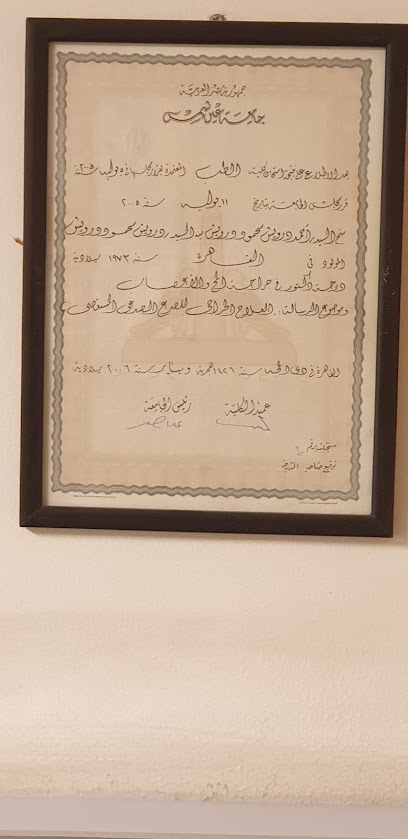 جمهورية مصر العربية
جامعة عين شمس
بعد الاطلاع على نتيجة امتحان كلية الطب المعتمدة بقرار مجلسها في ٥ يوليه سنة ٢٠٠٥
قرر مجلس الجامعة بتاريخ ١١ يوليه سنة ٢٠٠٥
منح السيد / أحمد درويش محمود درويش ابن السيد / درويش محمود درويش
المولود في القاهرة سنة ١٩٧٣ ميلادية
درجة دكتور في جراحة المخ والأعصاب
وموضوع الرسالة: العلاج الجراحي للصرع الصدغي المستعصي
القاهرة في ذي الحجة سنة ١٤٢٦ هجرية و يناير سنة ٢٠٠٦ ميلادية
عميد الكلية رئيس الجامعة
سجلت برقم
توقيع صاحب الدرجة